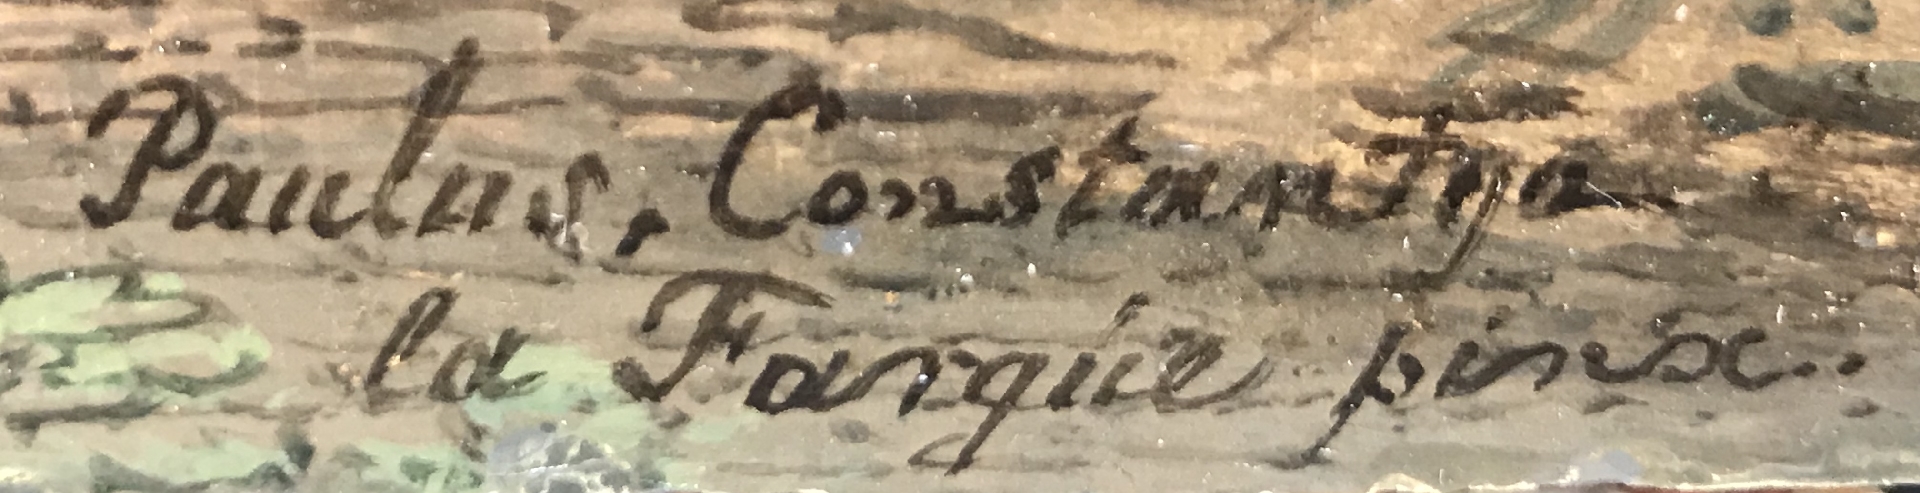 Paulus, Constantyn
la Fargúe pinx..